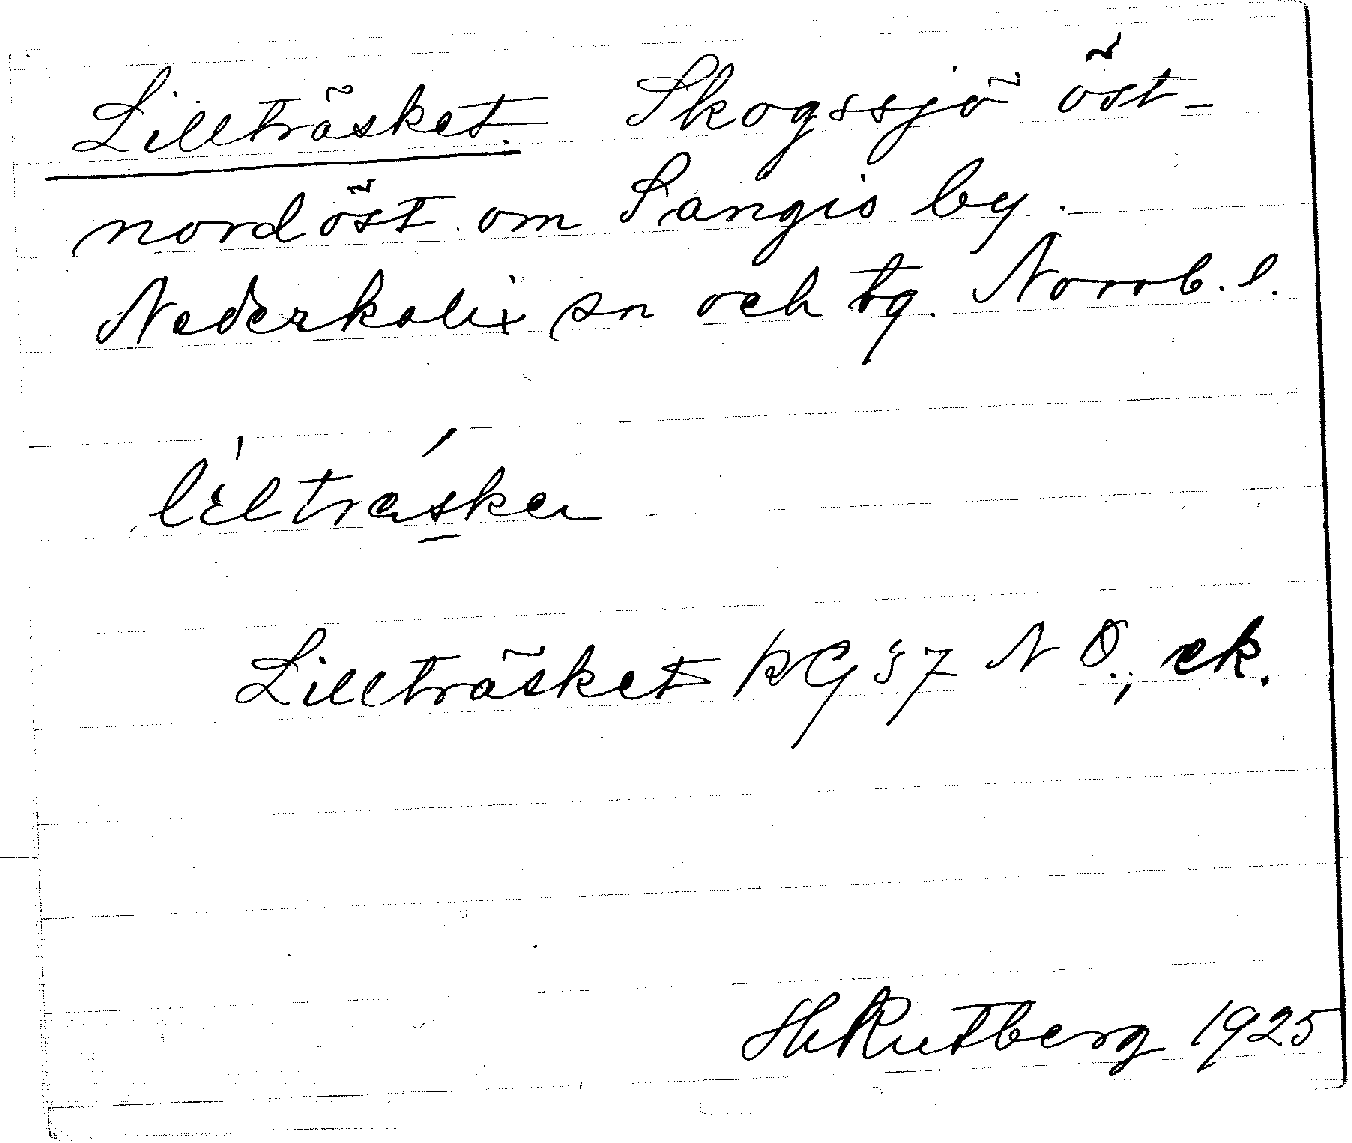 Lillträsket. Skogssjö öst-
nordöst om Sangis by.
Nederkalix sn och tg. Norrb. l.
lìlträ́skeı
Lillträsket KG 37 N O., ek.
H Rutberg 1925